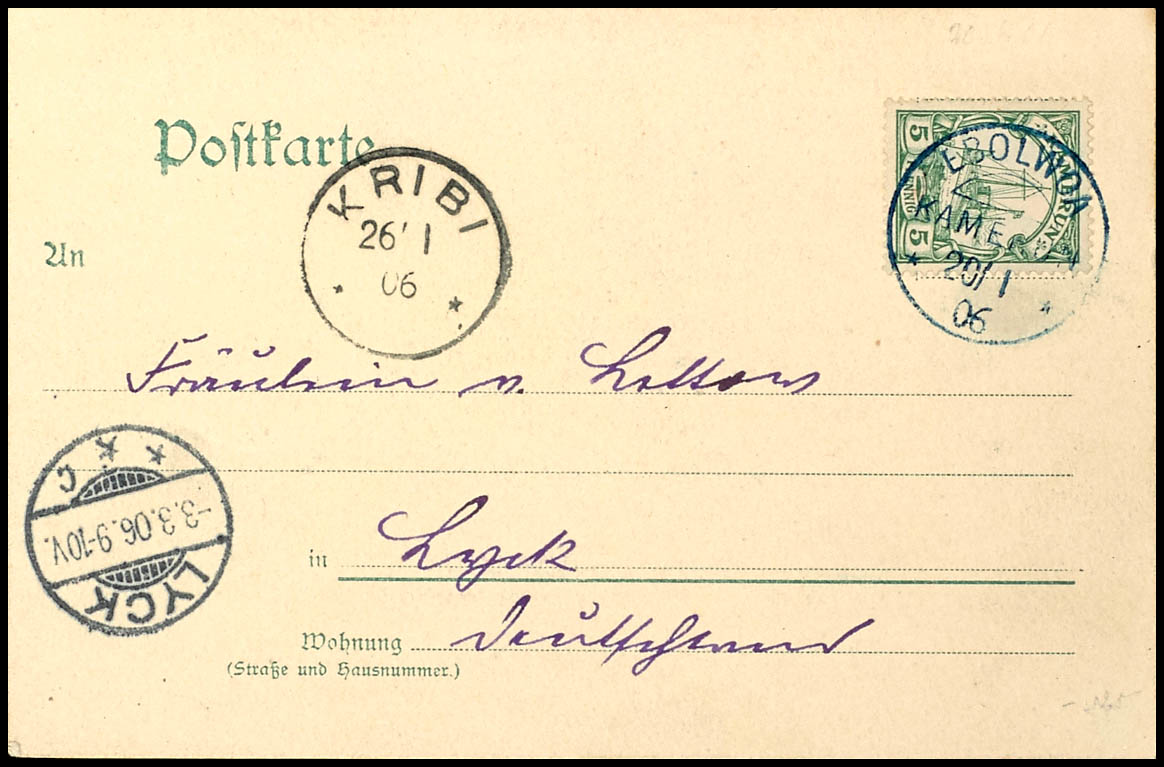 Postkarte
KAMERUN
5 5
EBOLWOA
KAMERUN
20/1
06
KRIBI
26/1
06
An
Fräulein v. Lettow
LYCK
-3.3.06.9-10V.
c
in Lyck
Wohnung Deutschland
(Straße und Hausnummer.)